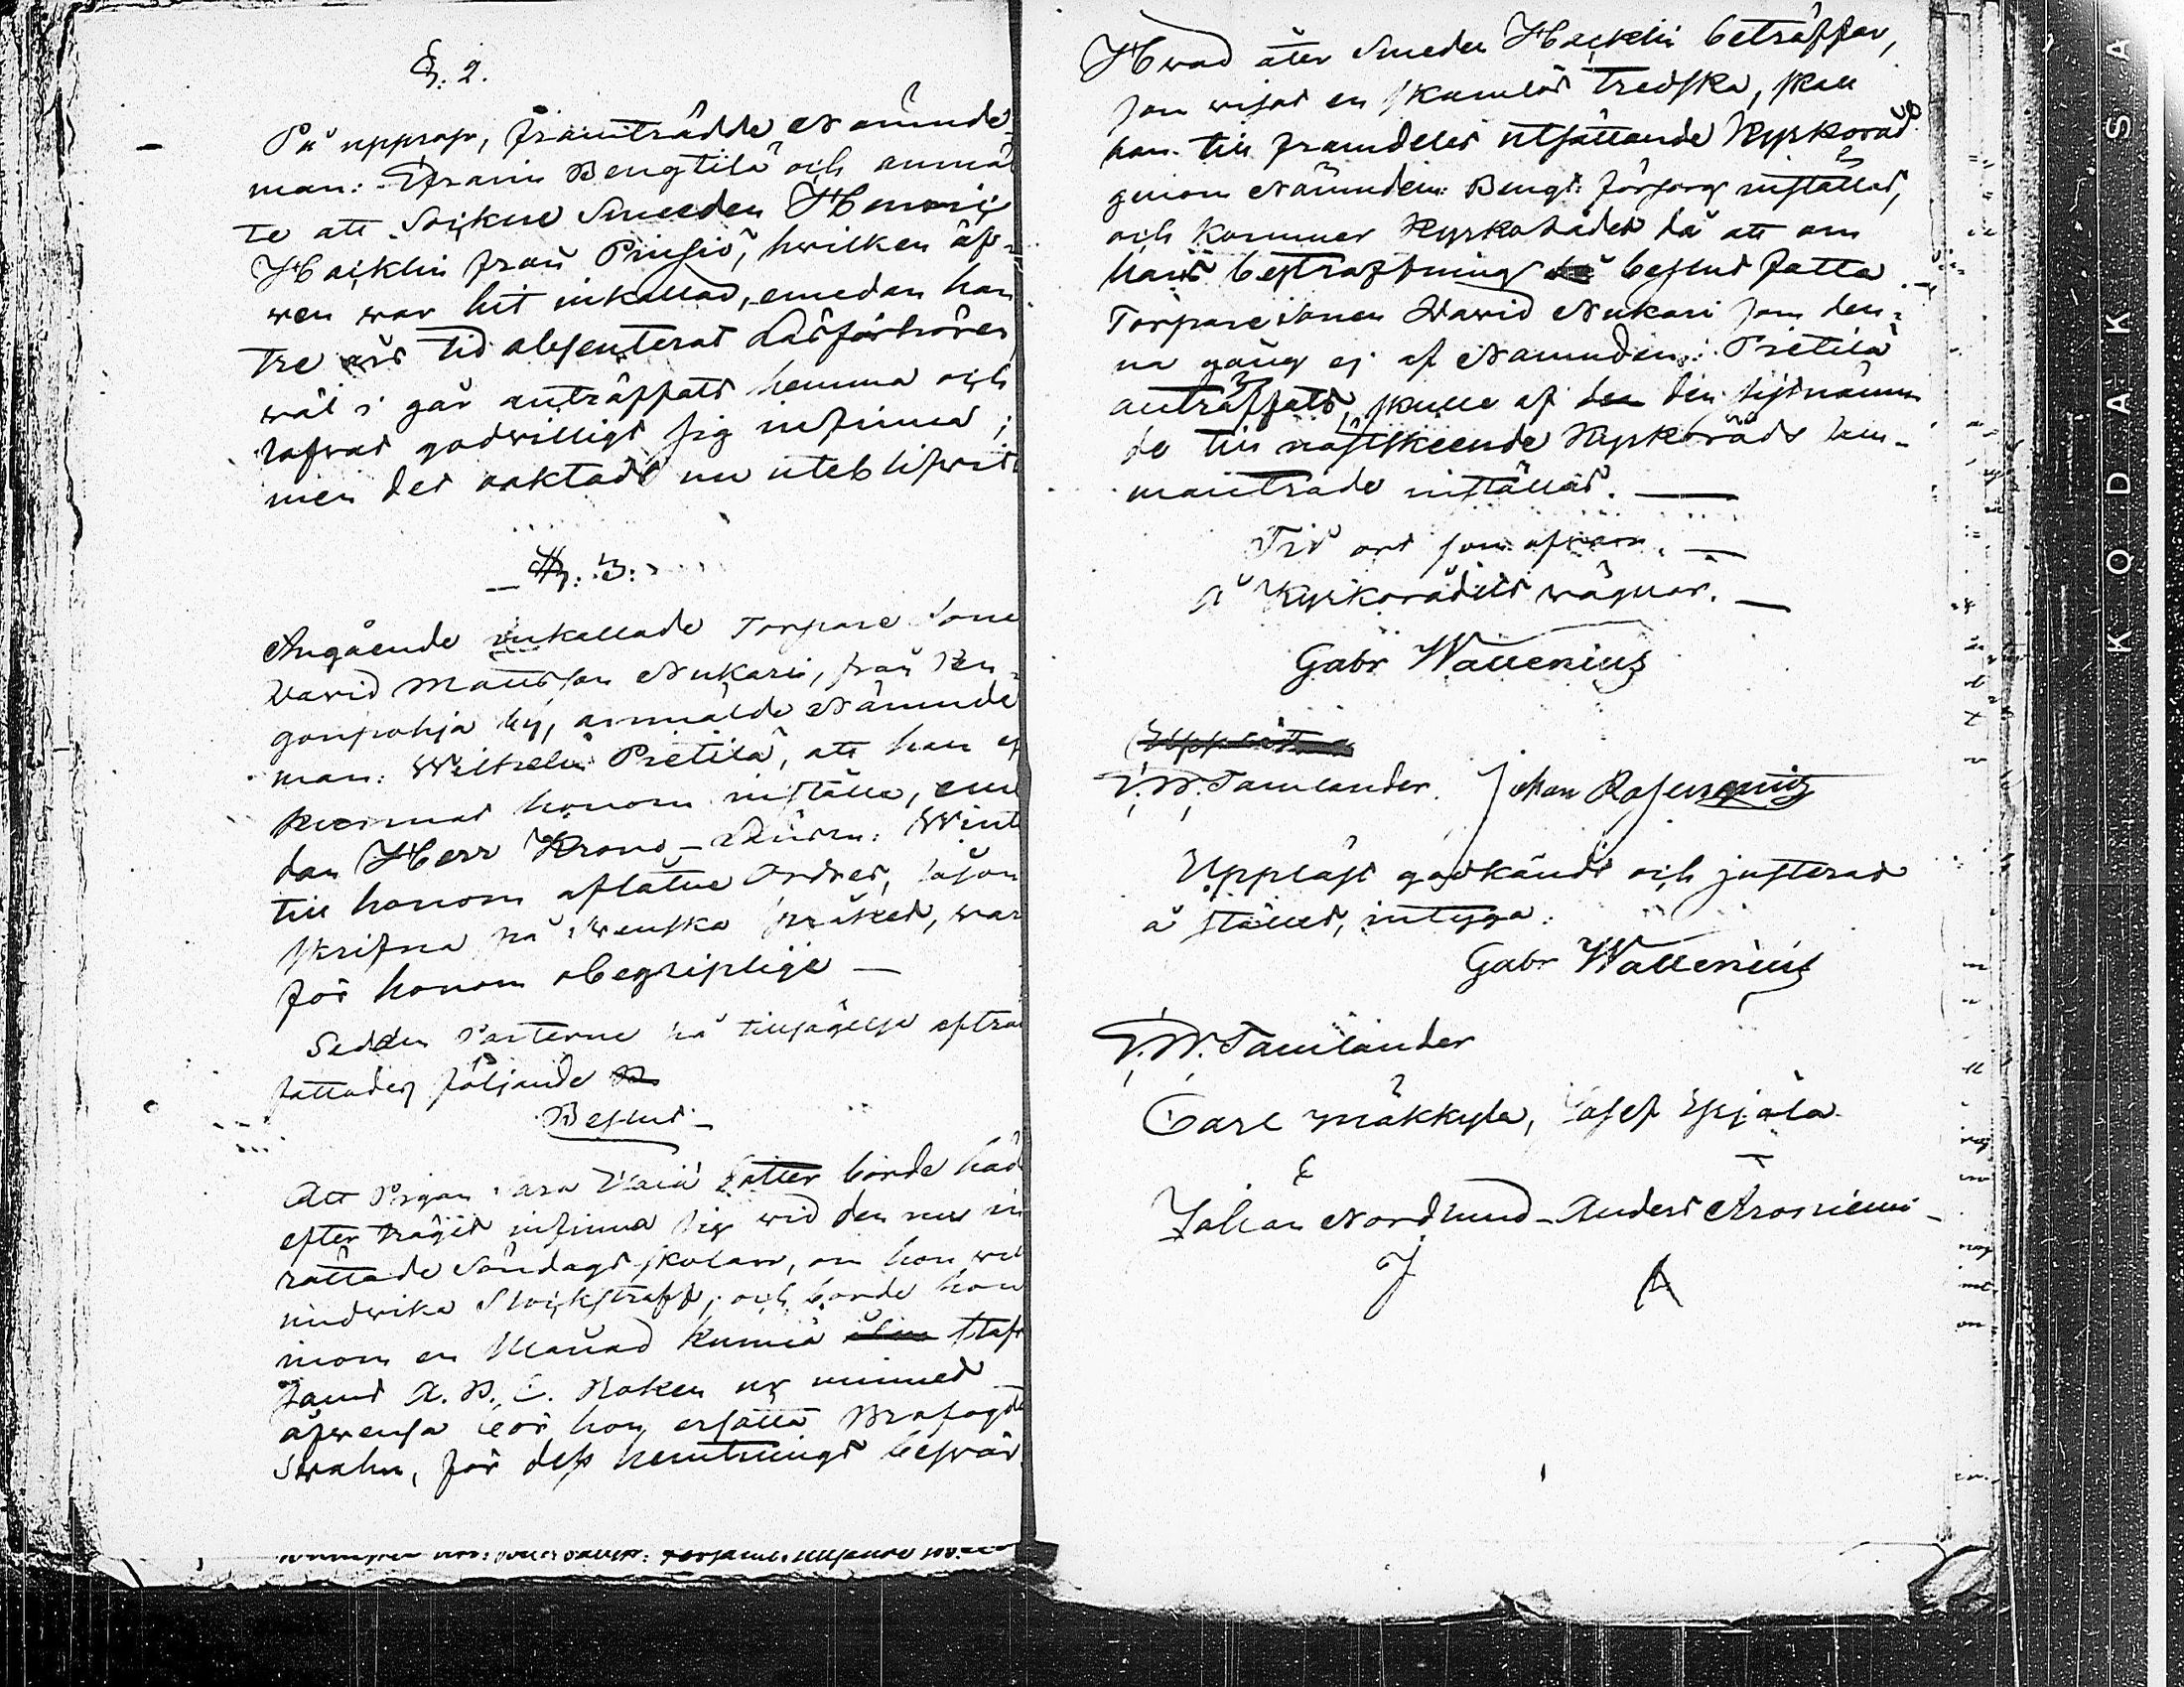 §. 2.
På upprop, framträdde Nämnde-
man: Efraim Bengtilä och anmäl
te att Sockne Smeden Henric
Häcklin från Pinsiö, hwilken äf-
wen war hit inkallad, emedan han
tre års tid absenterat Läsförhören
wäl i går anträffats hemma och
lofwat godwilligt sig infinna;
men det oaktadt nu uteblifwit
§. 3.
Angående inkallade Torpare Sone
David Mattsson Nukari, från
gonpohja by, anmälde Nämnde
man: Wilhelm Pietilä, att han ej
kunnat honom inställa, eme
dan Herr Krono-Länsm:
till honom aflåtne Ordres, såsom
skrifna på Swenska språket, war
för honom obegriplige —
Sedan Parterne på tillsägelse
fattades följande
Beslut
Att Pigan Maja dotter borde
efter träget infinna sig wid den nu in
rättade Söndags skolan, om hon will
undwika Stockstraff; och borde hon
inom en Månad kunna staf
samt A. B. C. Boken ur minnet
äfwensa bör hon ersätta
Strahn, för dess hemtnings beswär
Hwad åter Smeden Häcklin beträffar,
som wisat en skamlös tredska, skall
han till framdeles utsättande Kyrkoråd
genom Nämndem: Bengt: försorg inställas,
och kommer Kyrkorådet då att om
hans bestraffning beslut fatta
Torpare Sonen David Nukari som den-
na gång ej af Nämndem: Pietilä
anträffats, skulle af den sistnämn
de till nästskeende Kyrkoråds sam-
manträde inställas. —
Tid ort som ofwan. —
På Kyrkorådets wägnar. —
Gabr Wallenius
G. W. Tamlander. Johan Rosenqvist
Uppläst godkändt och justerad
å stället, intyga:
Gabr Wallenius
G. W. Tamlander
Carl Mäkkylä, Josef Yrjälä
Johan Nordlund - Anders Aroniemi -
J A
K O D A K S A